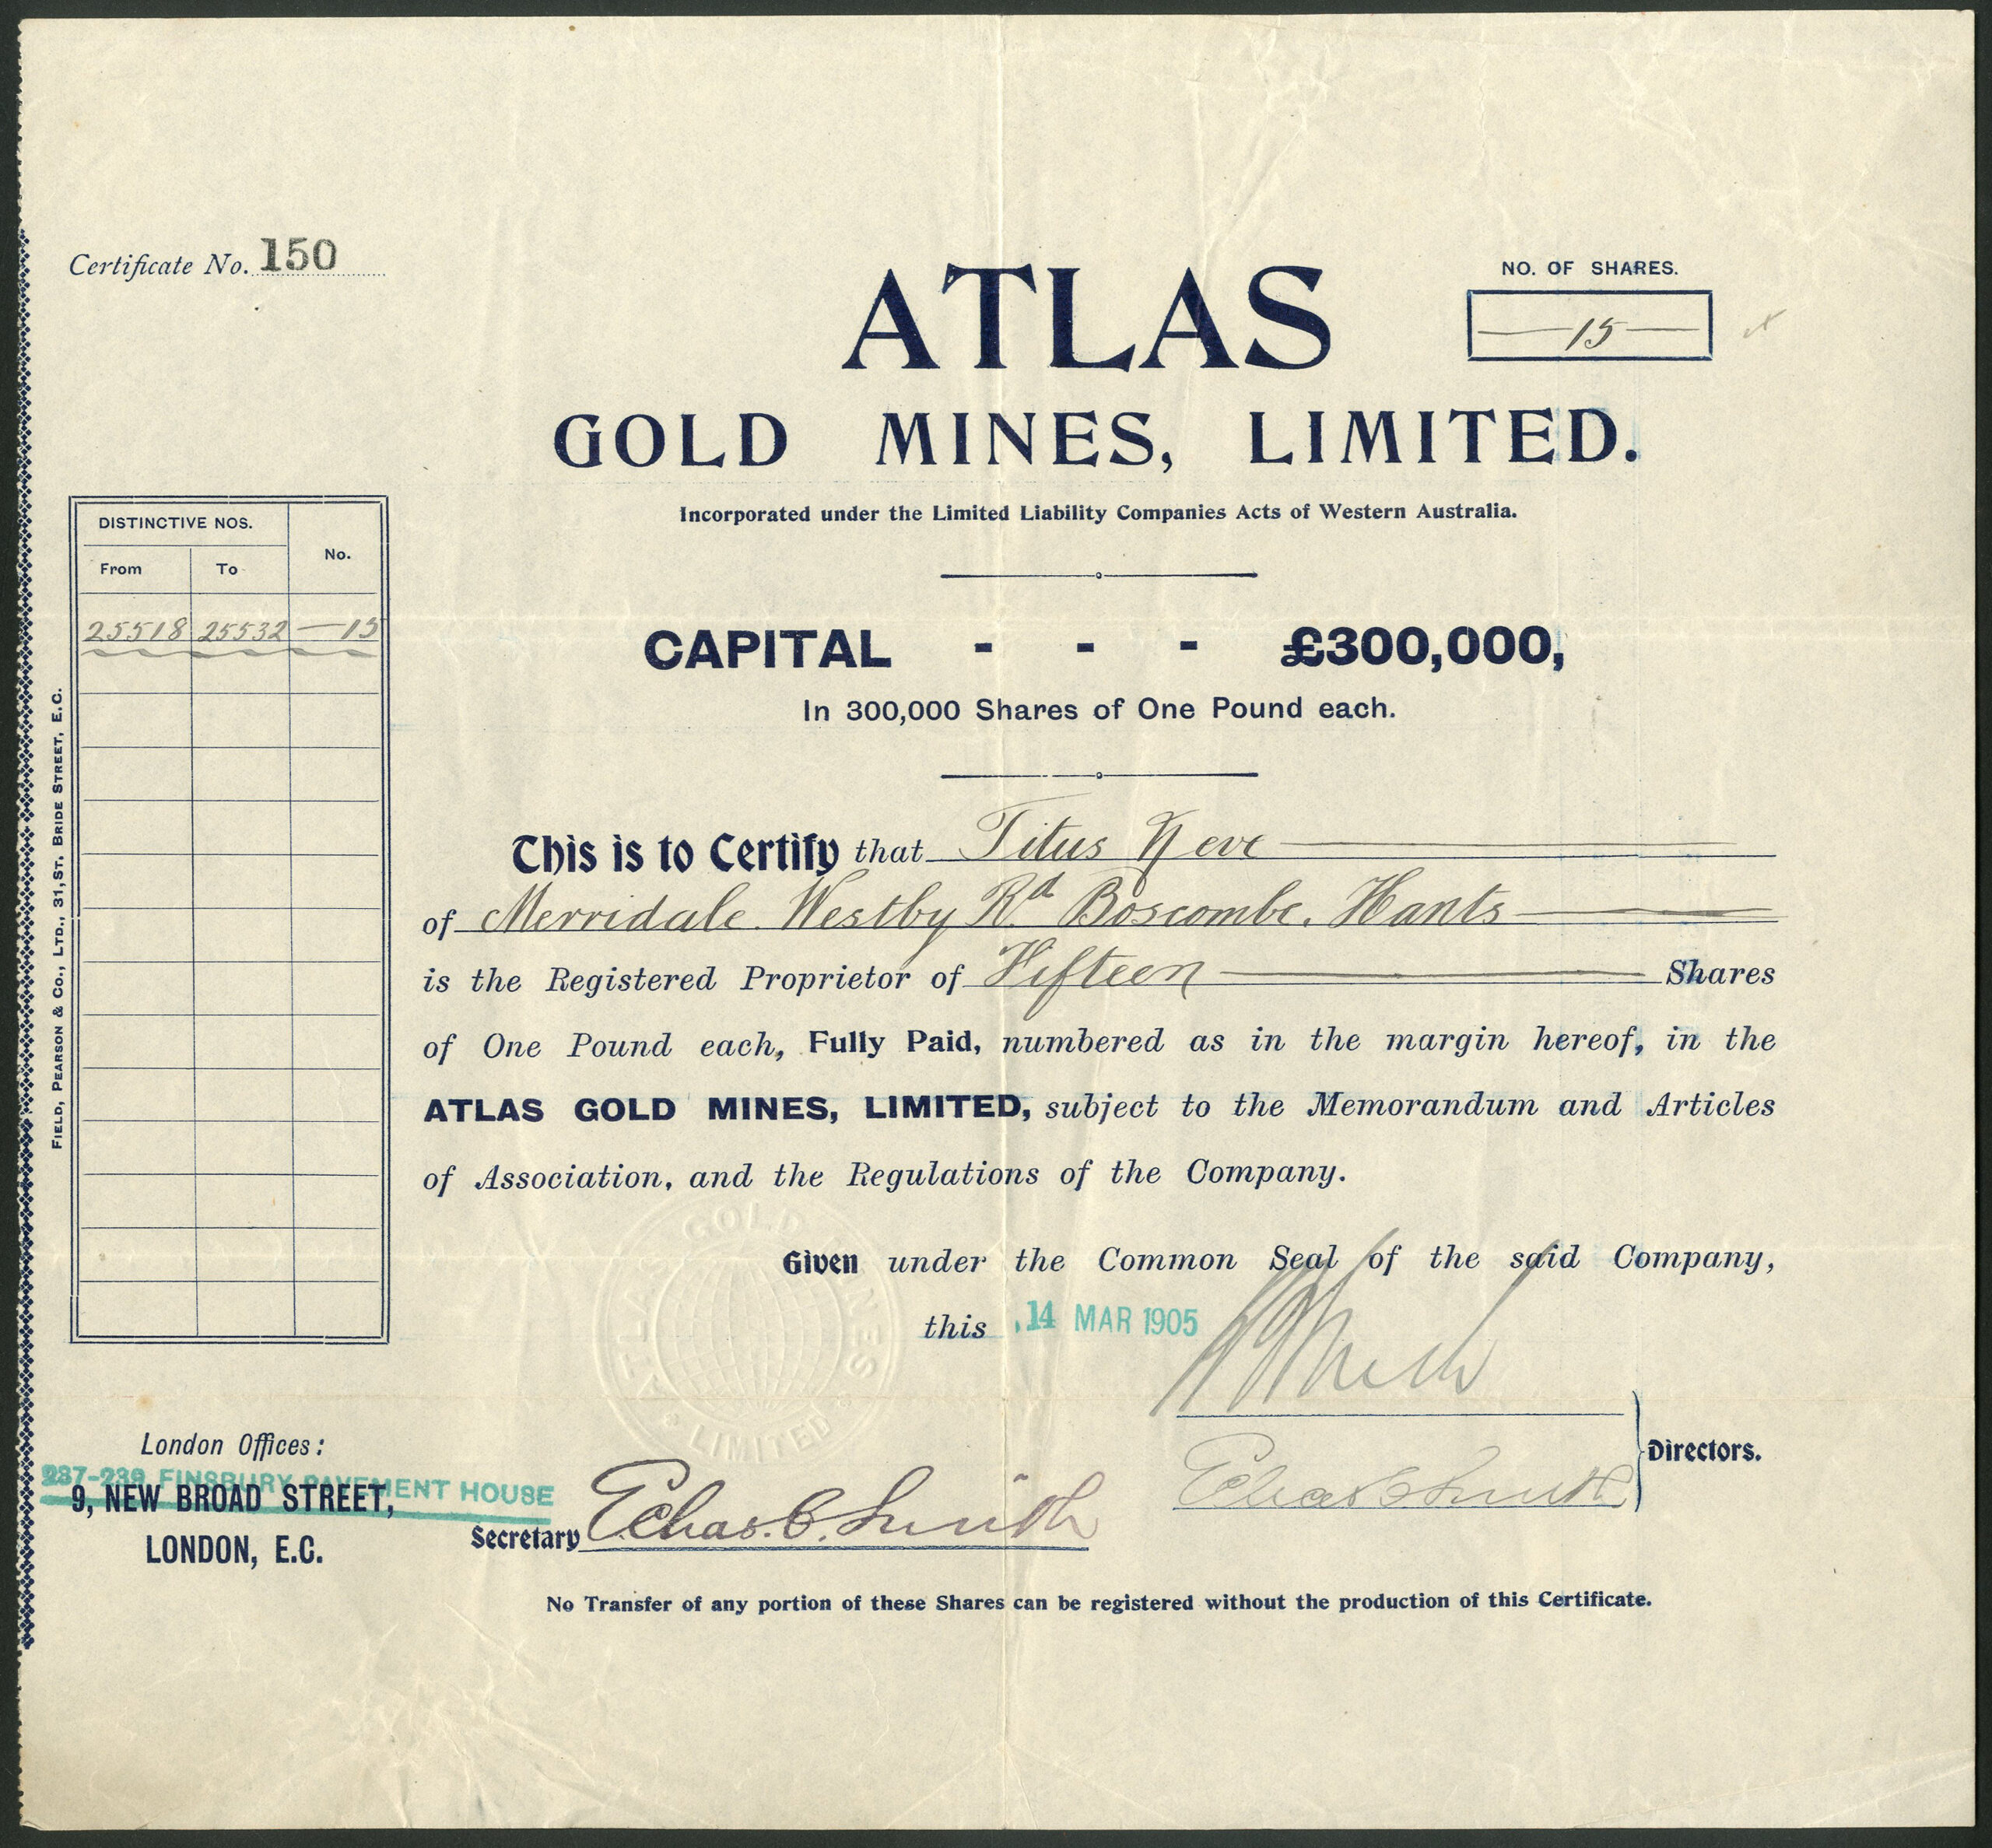 Certificate No. 150
NO. OF SHARES.
15
ATLAS
GOLD MINES, LIMITED.
Incorporated under the Limited Liability Companies Acts of Western Australia.
DISTINCTIVE NOS.
No.
From To
25518 25532 — 15
CAPITAL - - - £300,000,
In 300,000 Shares of One Pound each.
This is to Certify that Titus Neve
of Merridale. Westby Rd Boscombe. Hants
is the Registered Proprietor of Fifteen Shares
of One Pound each, Fully Paid, numbered as in the margin hereof, in the
ATLAS GOLD MINES, LIMITED, subject to the Memorandum and Articles
of Association, and the Regulations of the Company.
Given under the Common Seal of the said Company,
this 14 MAR 1905
ATLAS GOLD MINES
LIMITED
Directors.
London Offices:
237-239 FINSBURY PAVEMENT HOUSE
9, NEW BROAD STREET,
LONDON, E.C.
Secretary Chas. C. Smith
Chas C Smith
No Transfer of any portion of these Shares can be registered without the production of this Certificate.
FIELD, PEARSON & Co., LTD., 31, ST. BRIDE STREET, E.C.